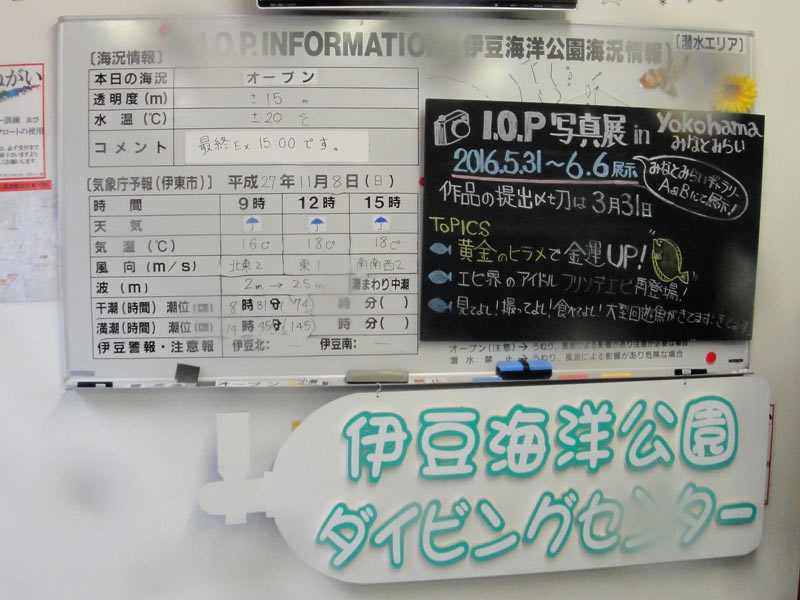 I.O.P. INFORMATION
伊豆海洋公園海況情報
〔潜水エリア〕
〔海況情報〕
本日の海況 オープン
透明度(m) ±15 m
水温(℃) ±20 ℃
コメント 最終Ex.15:00です。
〔気象庁予報(伊東市)〕 平成27年11月8日(日)
時間 9時 12時 15時
天気
気温(℃) 16c° 18c° 18c°
風向(m/s) 北東2 東1 南南西2
波(m) 2m→2.5m 潮まわり中潮
干潮(時間) 潮位(cm) 8時31分(74) 時 分( )
満潮(時間) 潮位(cm) 14時45分(145) 時 分( )
伊豆警報・注意報 伊豆北: 伊豆南:
I.O.P 写真展 in Yokohama
みなとみらい
2016.5.31〜6.6展示
みなとみらいギャラリー
A&Bにて展示!
作品の提出〆切は3月31日
ToPICS
黄金のヒラメで金運UP!
エビ界のアイドルフリソデエビ再登場!!
見てよし!撮ってよし!食べてよし!大型回遊魚がきてます
オープン(注意)→うねり、風波による影響があり注意が必要な場合
潜水禁止→うねり、風波による影響があり危険な場合
伊豆海洋公園
ダイビングセンター